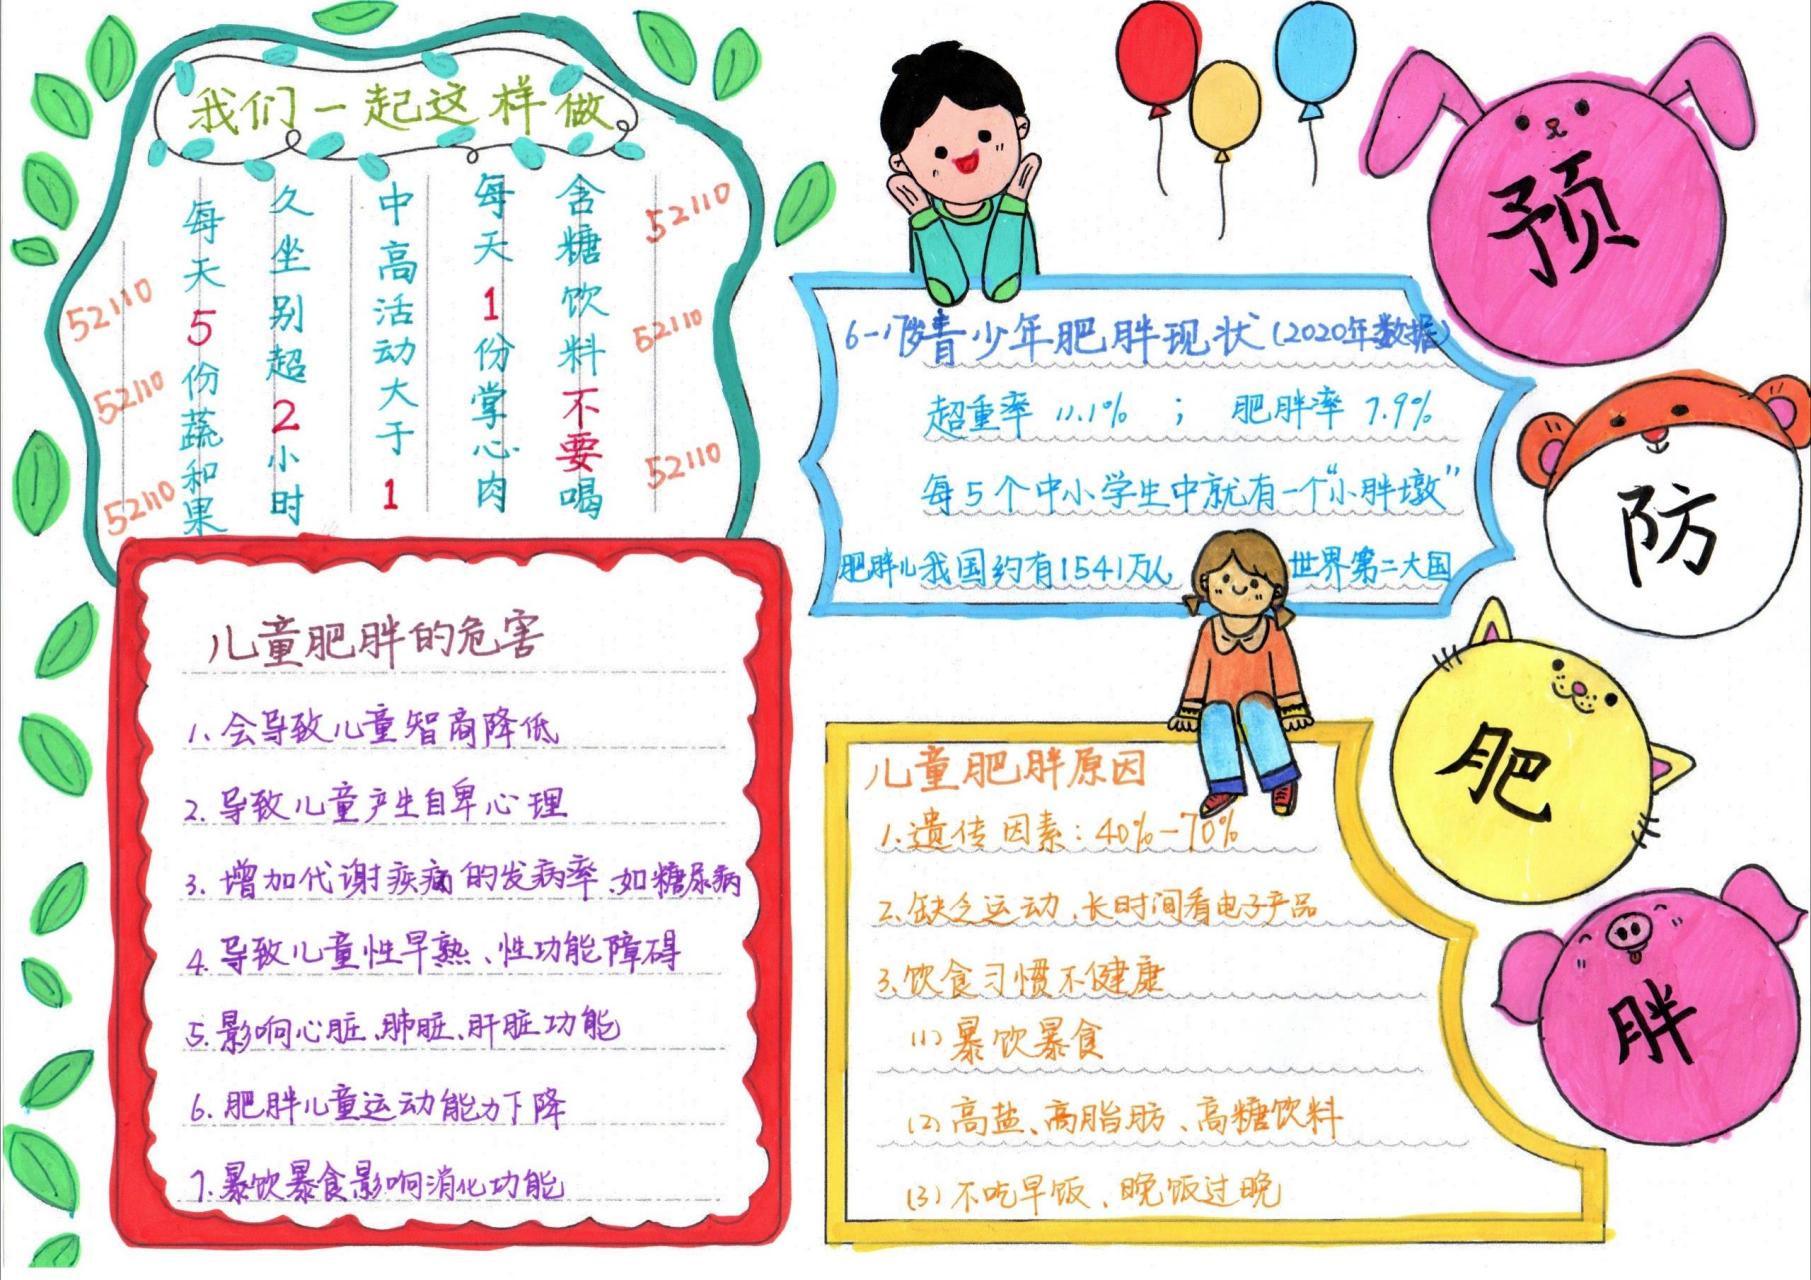 我们一起这样做
每天5份蔬和果
久坐别超2小时
中高活动大于1
每天1份掌心肉
含糖饮料不要喝
52110
52110
52110
52110
52110
52110
儿童肥胖的危害
1.会导致儿童智商降低
2.导致儿童产生自卑心理
3.增加代谢疾病的发病率、如糖尿病
4.导致儿童性早熟、性功能障碍
5.影响心脏、肺脏、肝脏功能
6.肥胖儿童运动能力下降
7.暴饮暴食影响消化功能
6-17岁青少年肥胖现状(2020年数据)
超重率 11.1% ; 肥胖率 7.9%
每5个中小学生中就有一个“小胖墩”
肥胖儿我国约有1541万人 世界第二大国
儿童肥胖原因
1.遗传因素:40%-70%
2.缺乏运动、长时间看电子产品
3.饮食习惯不健康
(1)暴饮暴食
(2)高盐、高脂肪、高糖饮料
(3)不吃早饭、晚饭过晚
预
防
肥
胖